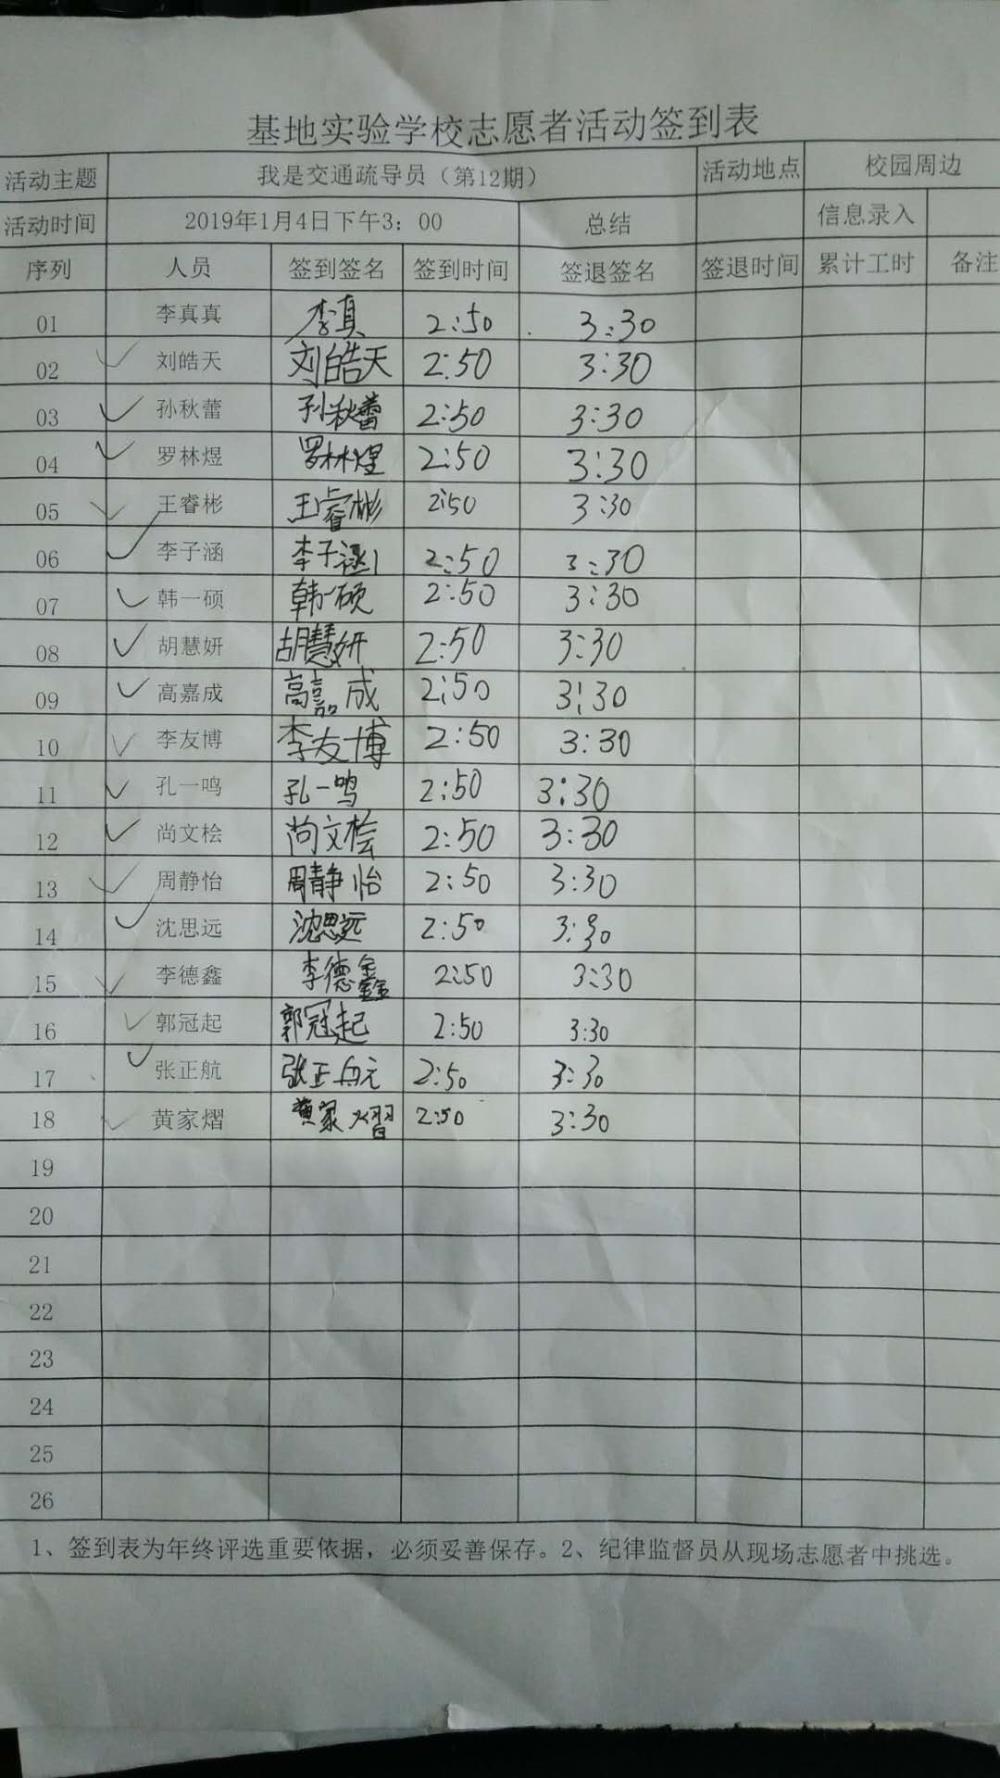 基地实验学校志愿者活动签到表
活动主题 我是交通疏导员（第12期） 活动地点 校园周边
活动时间 2019年1月4日下午3：00 总结 信息录入
序列 人员 签到签名 签到时间 签退签名 签退时间 累计工时 备注
01 李真真 李真 2:50 3:30
02 刘皓天 刘皓天 2:50 3:30
03 孙秋蕾 孙秋蕾 2:50 3:30
04 罗林煜 罗林煜 2:50 3:30
05 王睿彬 王睿彬 2:50 3:30
06 李子涵 李子涵 2:50 3:30
07 韩一硕 韩一硕 2:50 3:30
08 胡慧妍 胡慧妍 2:50 3:30
09 高嘉成 高嘉成 2:50 3:30
10 李友博 李友博 2:50 3:30
11 孔一鸣 孔一鸣 2:50 3:30
12 尚文桧 尚文桧 2:50 3:30
13 周静怡 周静怡 2:50 3:30
14 沈思远 沈思远 2:50 3:30
15 李德鑫 李德鑫 2:50 3:30
16 郭冠起 郭冠起 2:50 3:30
17 张正航 张正航 2:50 3:30
18 黄家熠 黄家熠 2:50 3:30
19
20
21
22
23
24
25
26
1、签到表为年终评选重要依据，必须妥善保存。2、纪律监督员从现场志愿者中挑选。